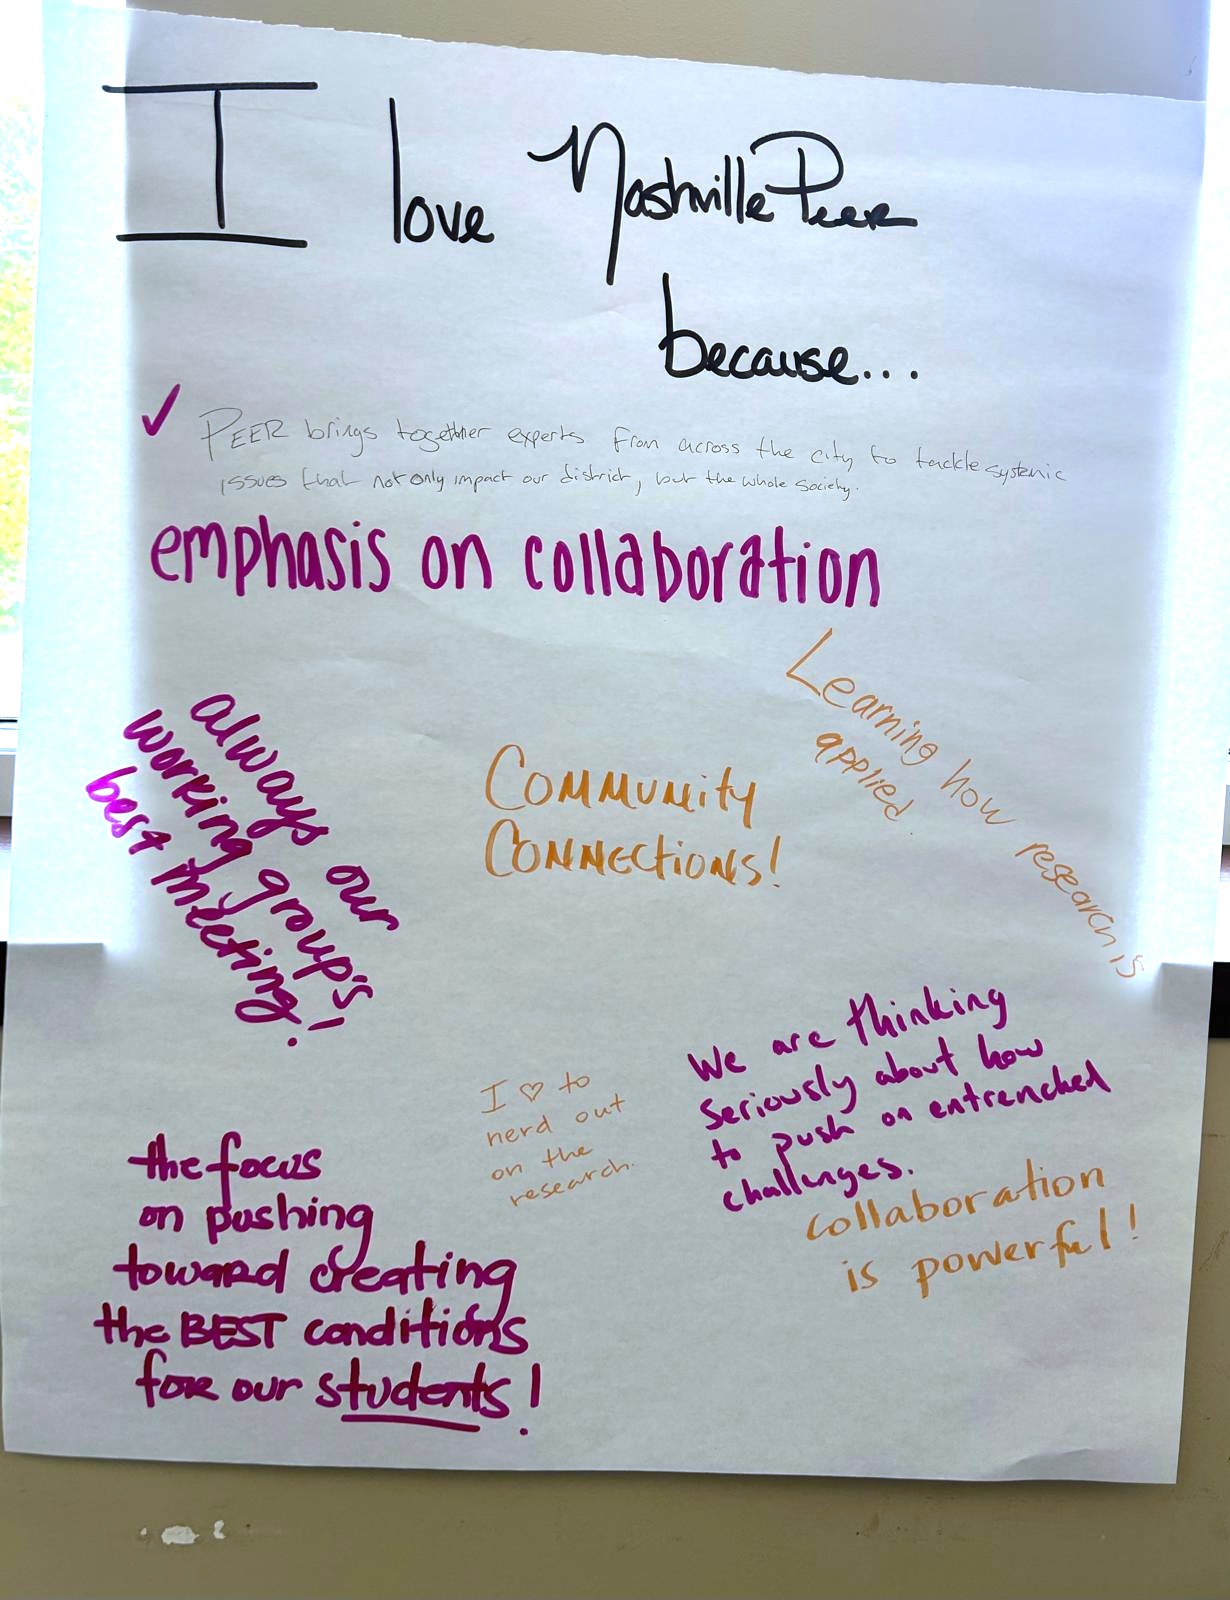 I love Nashville PEER
because...
✓ PEER brings together experts from across the city to tackle systemic
issues that not only impact our district, but the whole society.
emphasis on collaboration
Learning how research is
applied.
always our
working group's
best meeting!!
COMMUNITY
CONNECTIONS!
We are thinking
seriously about how
to push on entrenched
challenges.
I ♡ to
nerd out
on the
research.
collaboration
is powerful!
the focus
on pushing
toward creating
the BEST conditions
for our students!